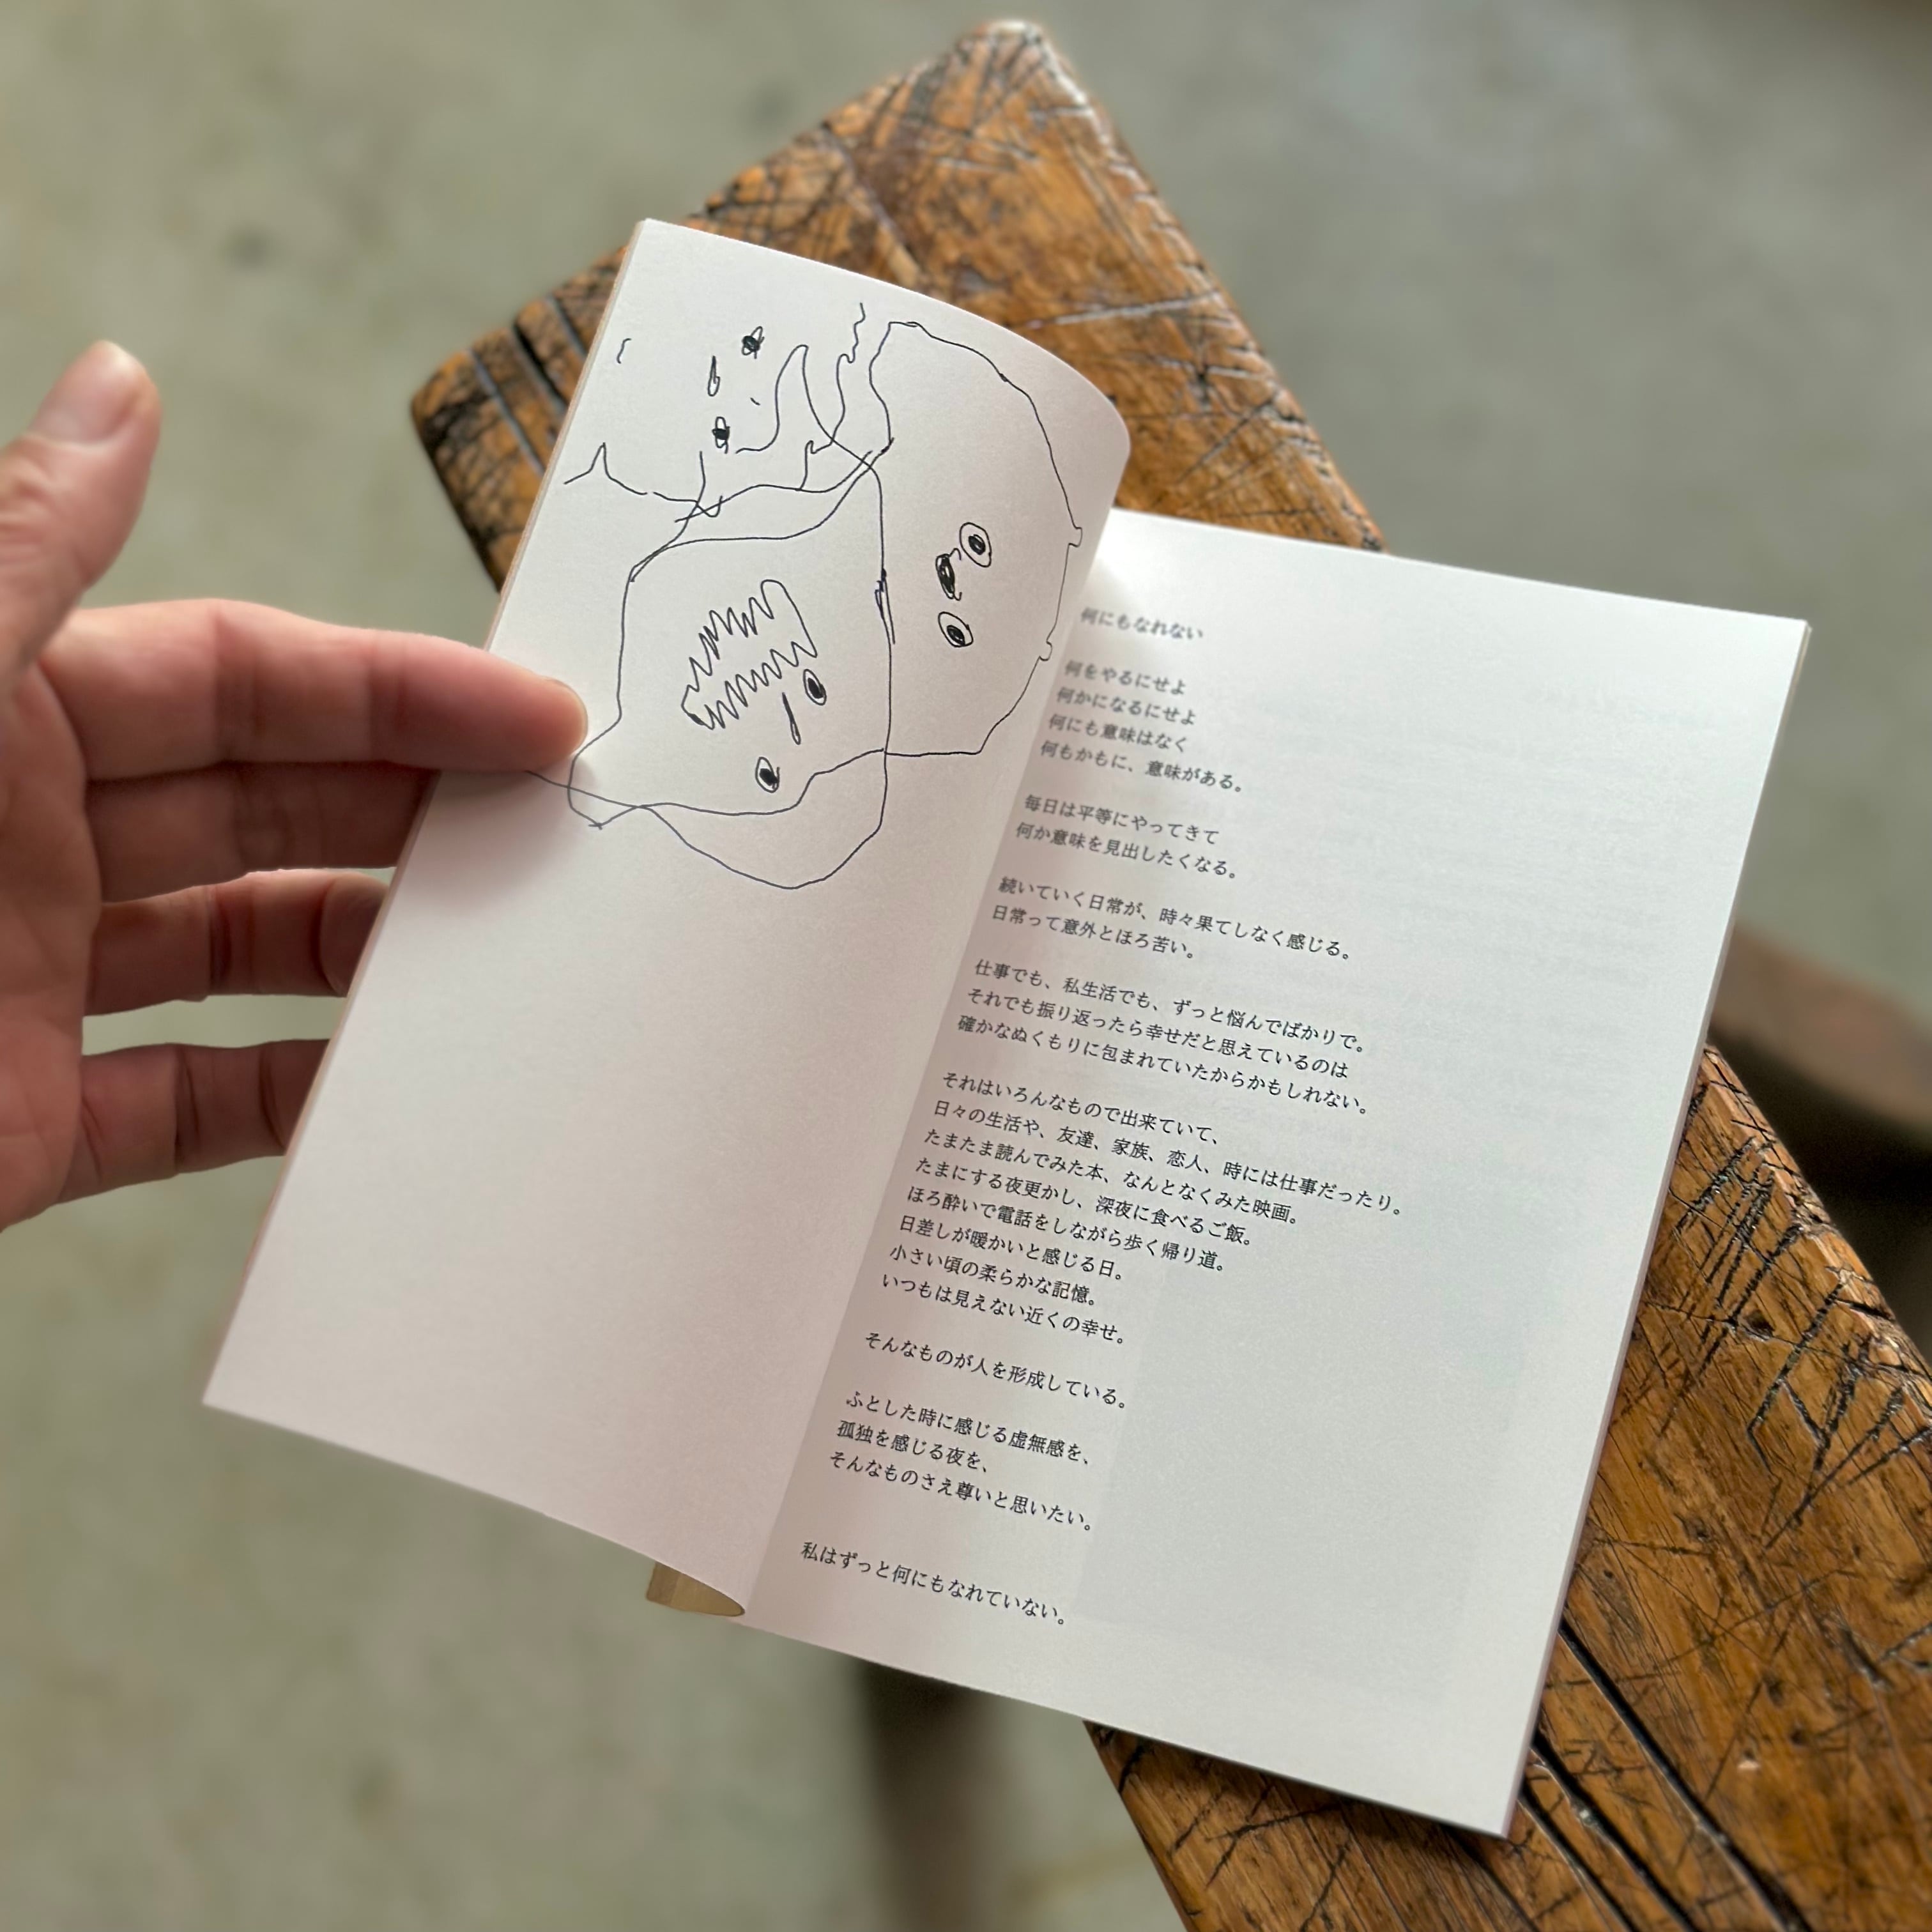 何にもなれない
何をやるにせよ
何かになるにせよ
何にも意味はなく
何もかもに、意味がある。
毎日は平等にやってきて
何か意味を見出したくなる。
続いていく日常が、時々果てしなく感じる。
日常って意外とほろ苦い。
仕事でも、私生活でも、ずっと悩んでばかりで。
それでも振り返ったら幸せだと思えているのは
確かなぬくもりに包まれていたからかもしれない。
それはいろんなもので出来ていて、
日々の生活や、友達、家族、恋人、時には仕事だったり。
たまたま読んでみた本、なんとなくみた映画。
たまにする夜更かし、深夜に食べるご飯。
ほろ酔いで電話をしながら歩く帰り道。
日差しが暖かいと感じる日。
小さい頃の柔らかな記憶。
いつもは見えない近くの幸せ。
そんなものが人を形成している。
ふとした時に感じる虚無感を、
孤独を感じる夜を、
そんなものさえ尊いと思いたい。
私はずっと何にもなれていない。